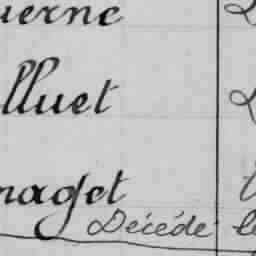 uerne
lluet
naget
Décédé le